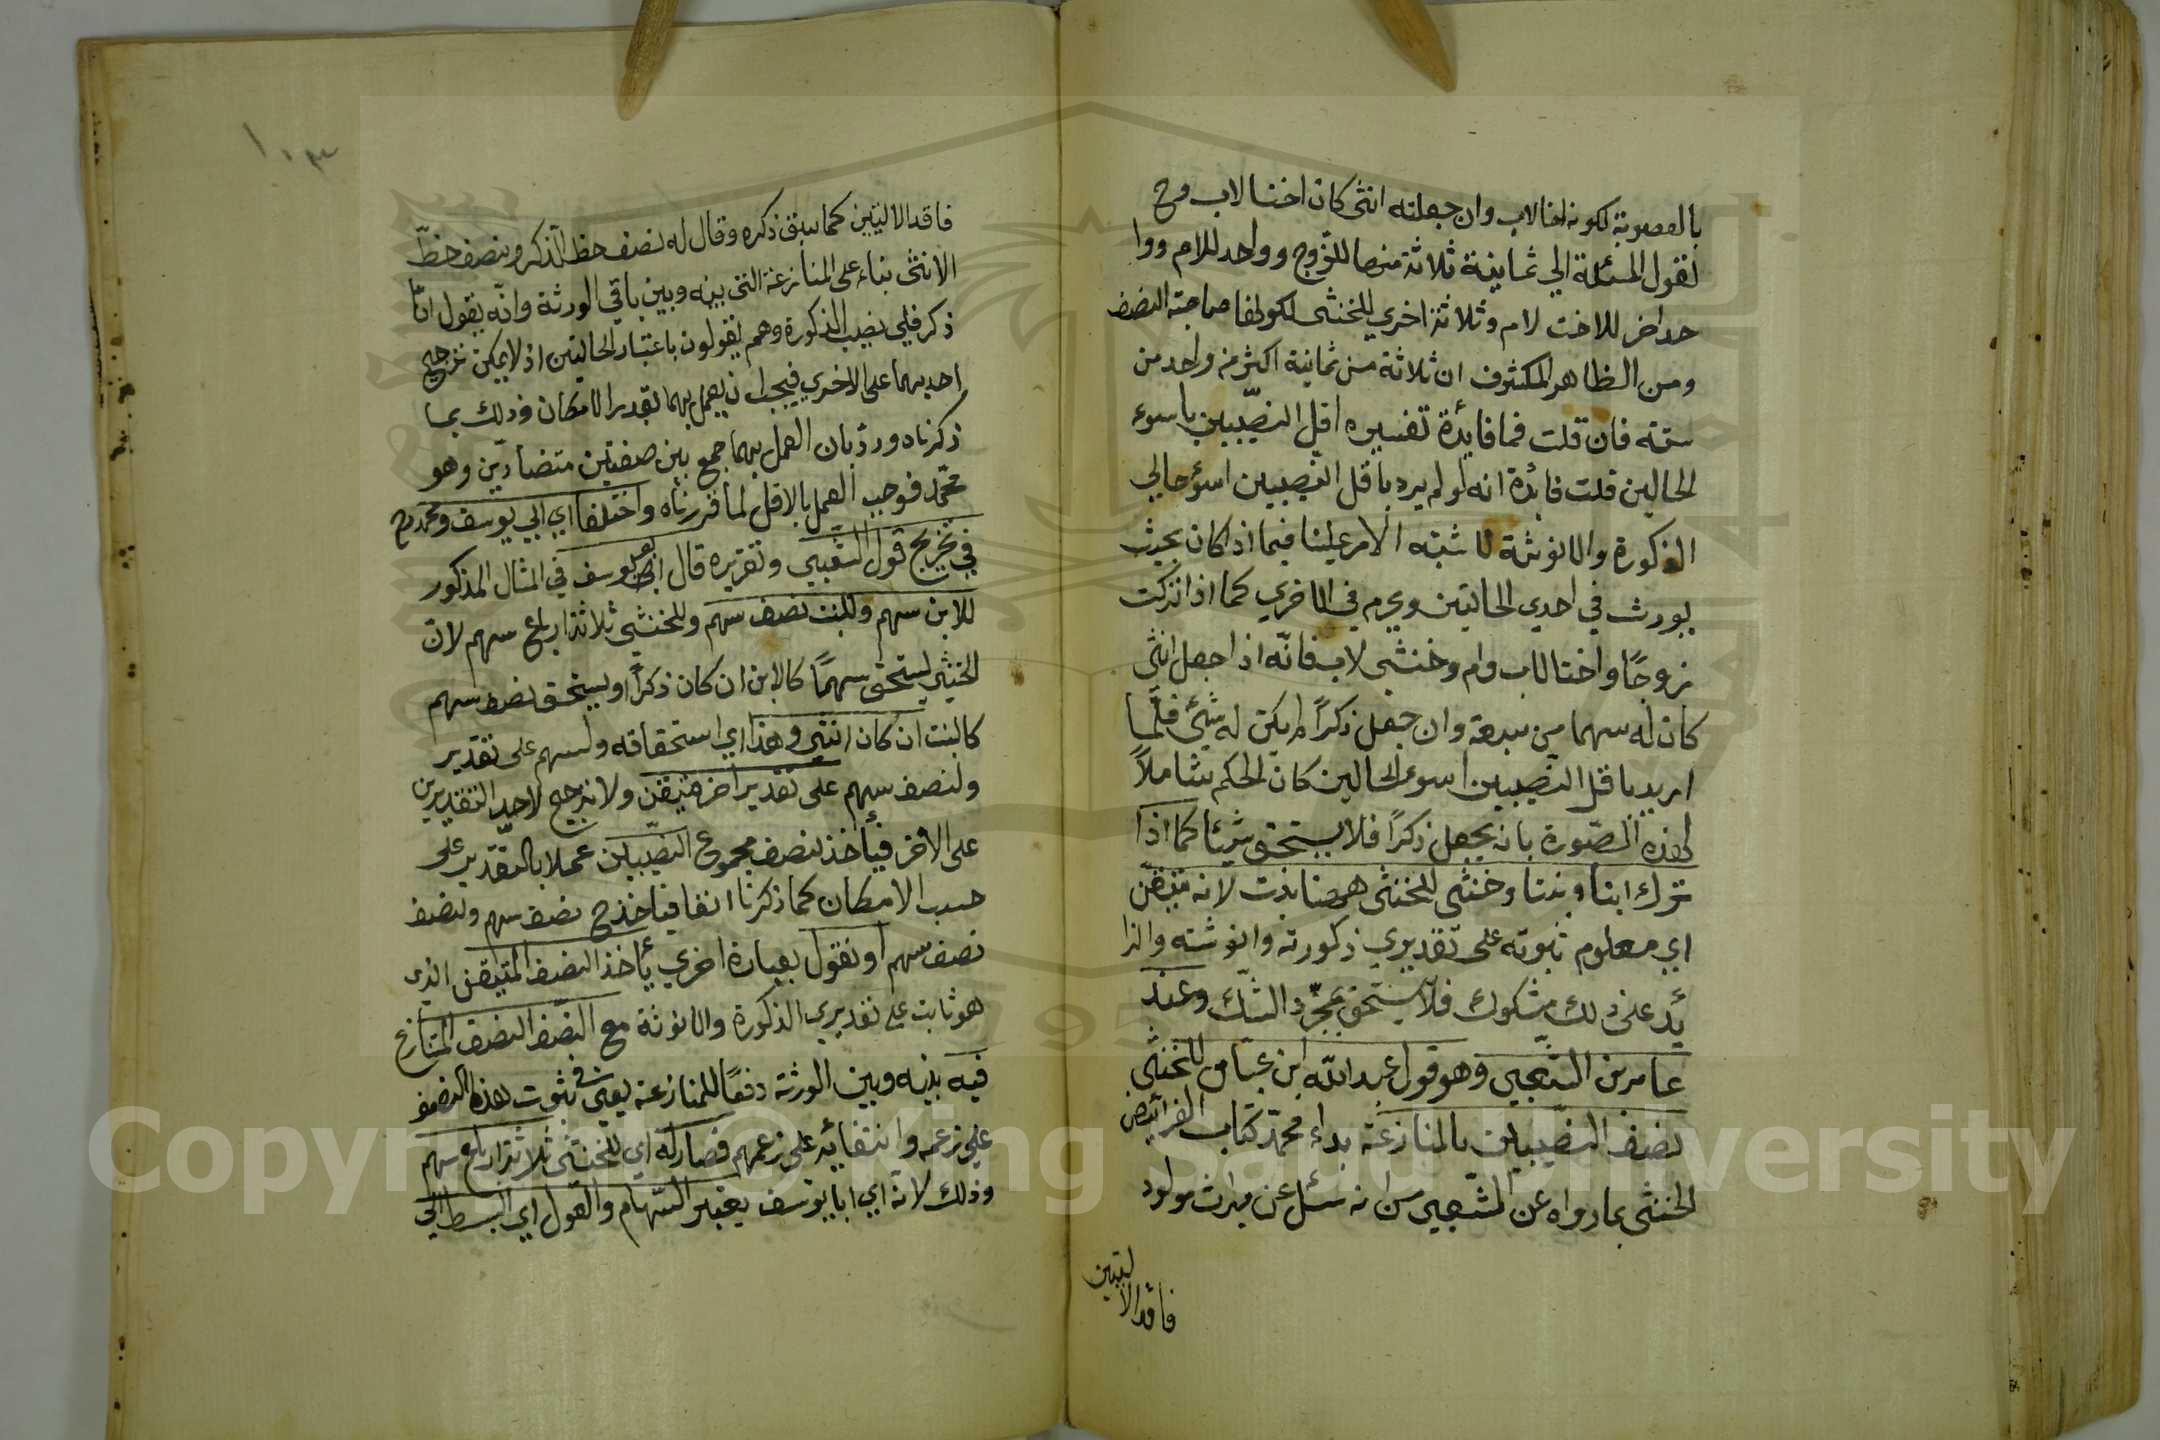 بالعصوبة لكونه اخا لاب وان جعلته انثى كان اختا لاب وح
تقول المسئلة الي ثمانية ثلاثة منها للزوج وواحد للام ووا
حد اخر للاخت لام وثلاثة اخري للخنثى لكونها صاحبة النصف
ومن الظاهر المكشوف ان ثلاثة من ثمانية اكثر من واحد من
ستة فان قلت فما فايدة تفسيره اقل النصيبين باسوء
الحالين قلت فائدة انه لو لم يرد باقل النصيبين اسوء حالي
الذكورة والانوثة لا شتبه الامر علينا فيما اذا كان بحيث
يورث في احدي الحالتين ويحرم في الاخري كما اذا تركت
زوجًا واختا لاب وام وخنثى لاب فانّه اذا جعل انثى
كان له سهما من سبعة وان جعل ذكرًا لم يكن له شئ فلمّا
اريد باقل النصيبين اسوء الحالين كان الحكم شاملاً
لهذه الصّورة بانه يجعل ذكرًا فلا يستحق شيئا كما اذا
ترك ابنا وبنتا وخنثى للخنثى هصنا بنت لانه متيقّن
اي معلوم ثبوته على تقديري ذكورته وانوثته والزا
يد على ذلك مشكوك فلا يستحق بمجرّد الشك وعند
عامر بن الشعبي وهو قول عبد اللّه ابن عباس للخنثى
نصف النصيبين بالمنازعة بداء محمّد كتاب الفرائض
الخنثى بما رواه عن الشعبي من انه سئل عن ميراث مولود
فاقد الالتيين
١٠٣
فاقد الالتيين كما سبق ذكره وقال له نصف حظ الذكر ونصف حظّ
الانثى بناء على المنازعة التي بينه وبين باقي الورثة وانّه يقول انّا
ذكر فلي نصيب الذكورة وهم يقولون باعتبار الحالتين اذ لا يمكن ترجيح
احديهما على الاخري فيجب ان يعمل بهما بقدر الامكان وذلك بما
ذكرناه وردّ بان العمل بهما جمع بين صفتين متضادتين وهو
محمّد فوجب العمل بالاقل لما قررناه واختلفا اي ابي يوسف ومحمد رح
في تخريج قول الشّعبي وتقريره قال ابو يوسف في المثال المذكور
للابن سهم وللبنت نصف سهم وللخنثى ثلاثة ارباع سهم لان
الخنثى يستحق سهمًا كالابن ان كان ذكرًا ويستحق نصف سهم
كالبنت ان كان انثى وهذا اي استحقاقه ولسهم على تقدير
ولنصف سهم على تقدير اخر متيقن ولا ترجيح لاحد التقديرين
على الاخر فيأخذ نصف مجموع النصيبين عملا بالتقدير على
حسب الامكان كما ذكرنا انفا فياخذح نصف سهم ونصف
نصف سهم او نقول بعبارة اخري يأخذ النصف المتيقن الذي
هو ثابت على تقديري الذكورة والانوثة مع النصف النصف المتنازع
فيه بينه وبين الورثة دفعًا للمنازعة يعني في ثبوت هذه النصف
على زعمه وانتفائه على زعمهم فصار له اي للخنثى ثلاثة ارباع سهم
وذلك لانّه اي ابا يوسف يعتبر السّهام والعول اي البسط الي
Copyright © King Saud University